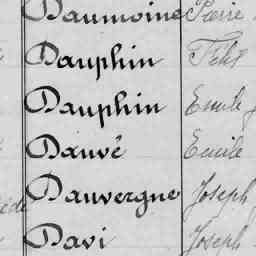 Daumoine Pierre
Dauphin Félix
Dauphin Emile J
Dauvé Emile
Dauvergne Joseph
Davi Joseph